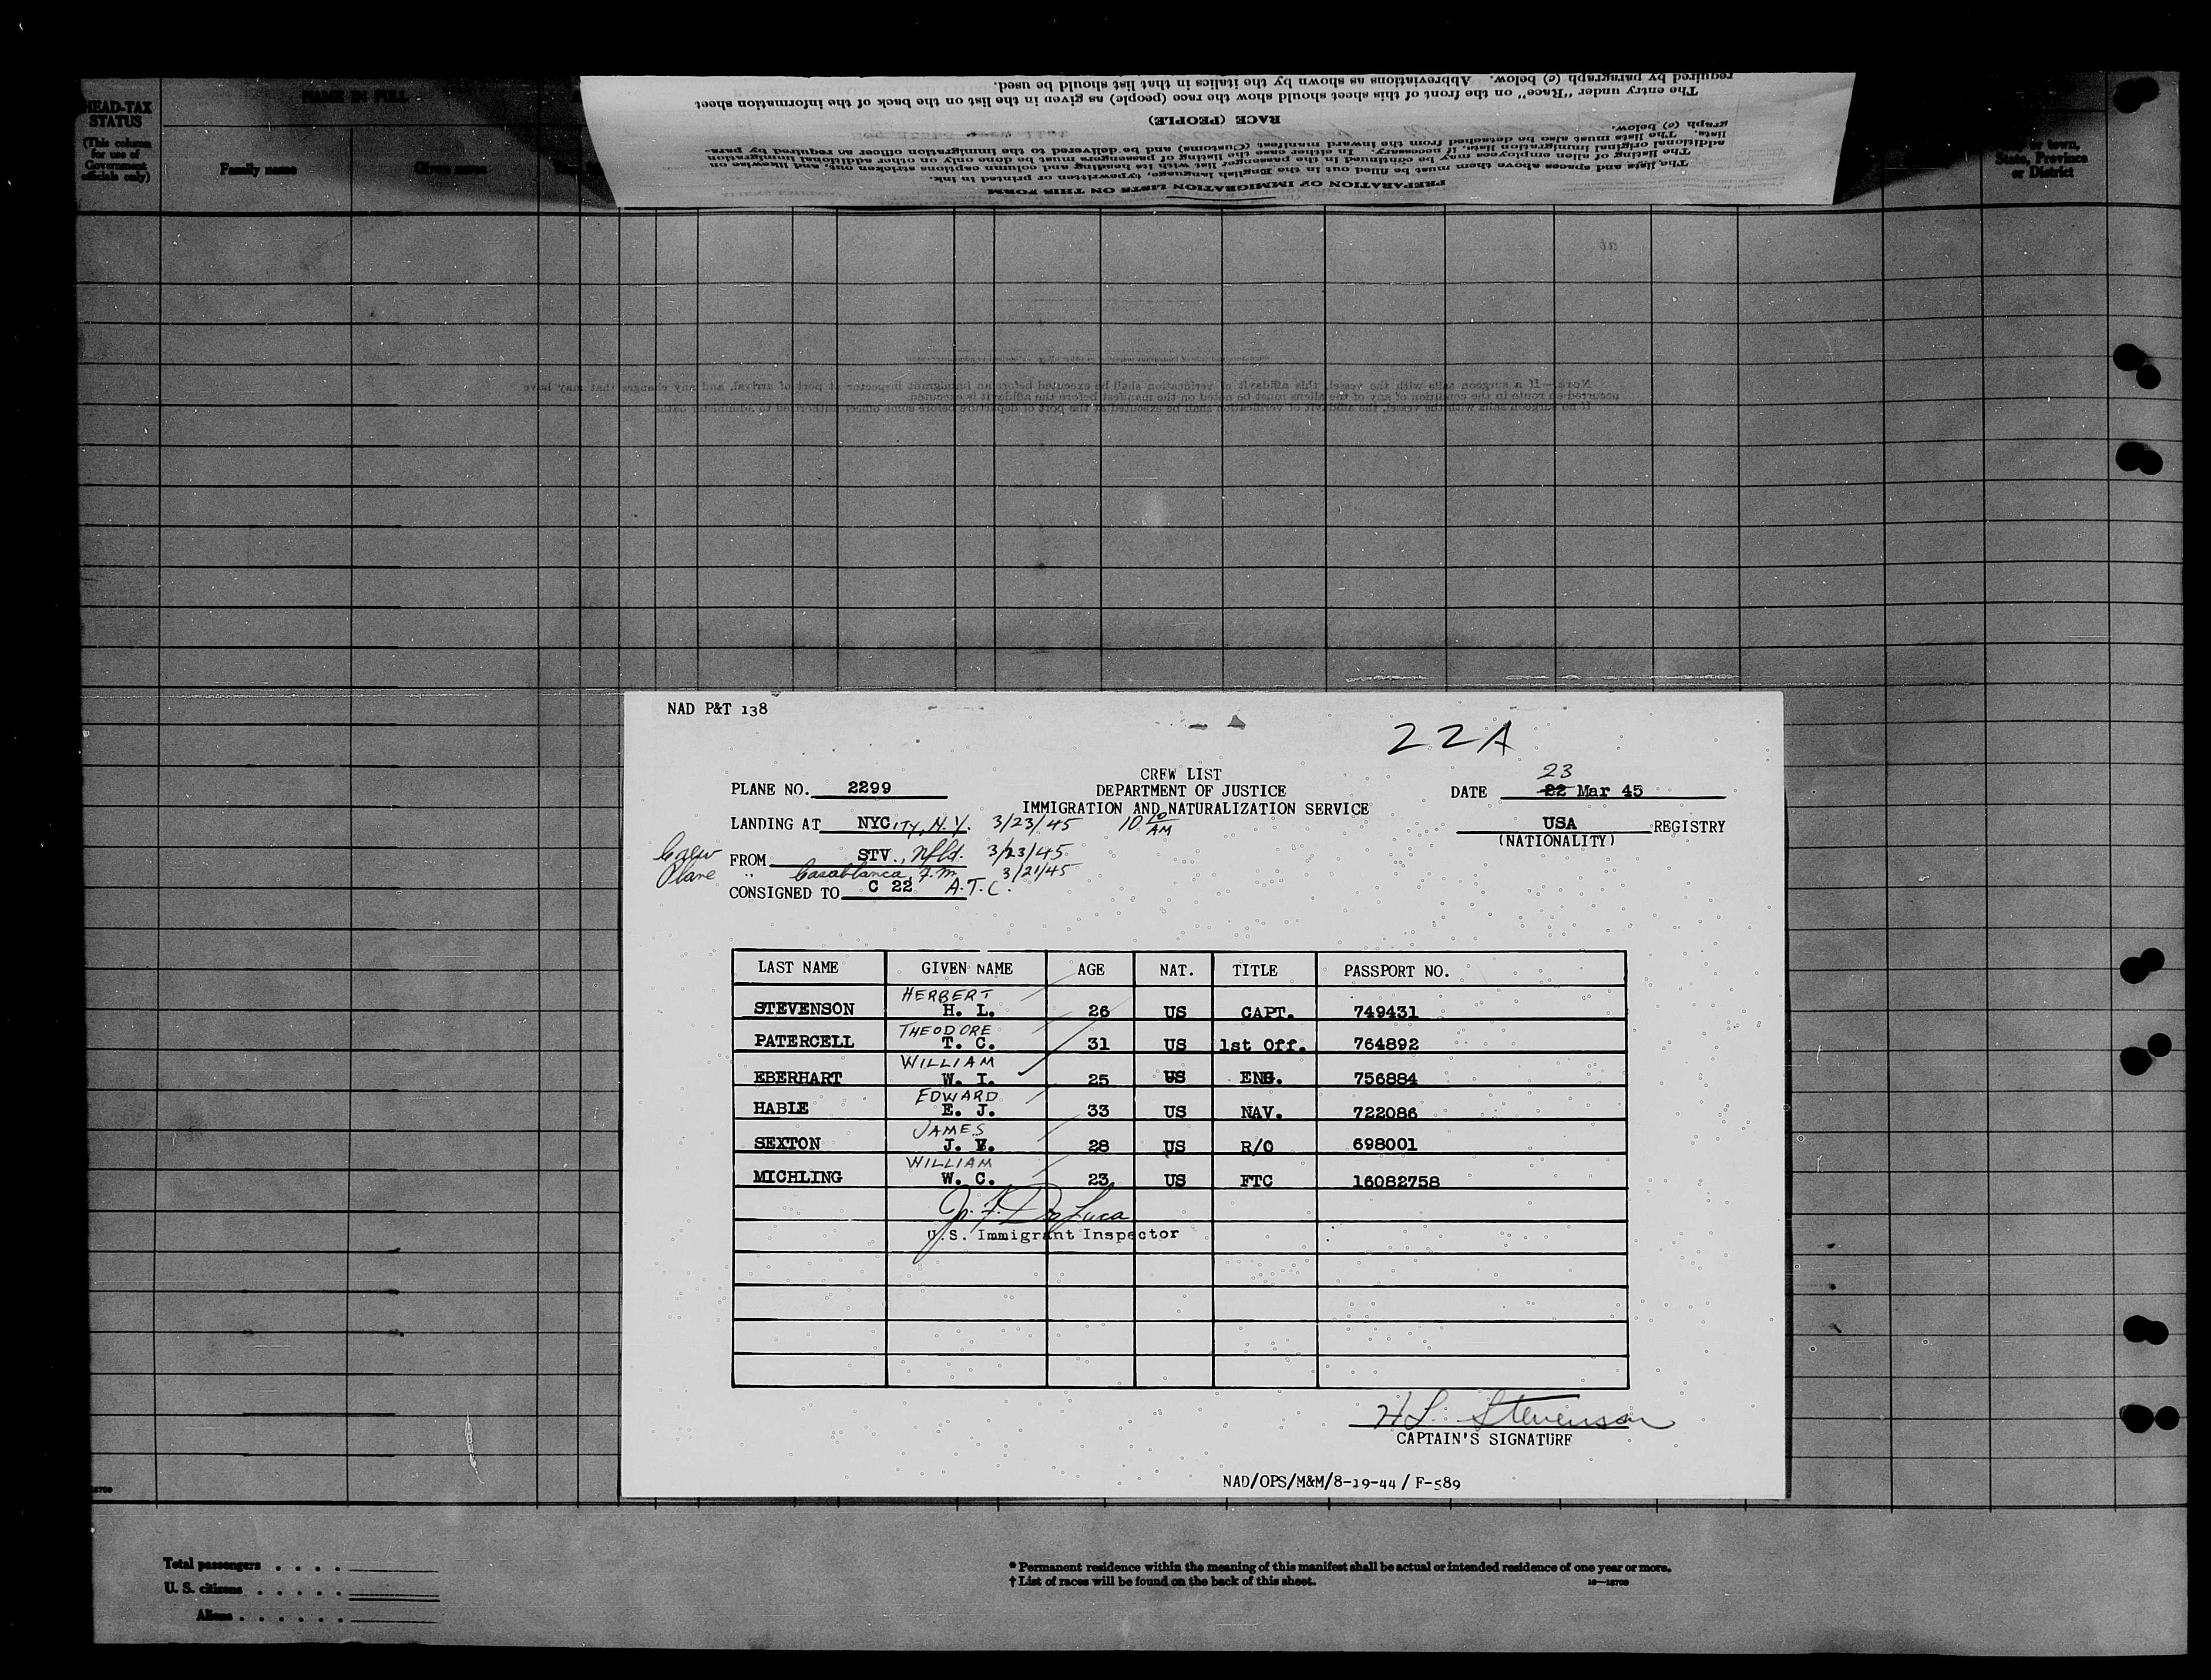 HEAD-TAX
STATUS
(This column
for use of
Government
officials only)
NAME IN FULL
Family name
Given name
required by paragraph (c) below. Abbreviations as shown by the italics in that list should be used.
The entry under "Race" on the front of this sheet should show the race (people) as given in the list on the back of the information sheet
RACE (PEOPLE)
graph (c) below.
lists. The lists must also be detached from the inward manifest (Customs) and be delivered to the immigration officer as required by para-
additional original immigration lists, if necessary. In either case the listing of passengers must be done only on other additional immigration
The listing of alien employees may be continued in the passenger list with its heading and column captions stricken out, and likewise on
The lists and spaces above them must be filled out in the English language, typewritten or printed in ink.
PREPARATION OF IMMIGRATION LISTS ON THIS FORM
or town,
State, Province
or District
Note.—If a surgeon sails with the vessel, this affidavit of verification shall be executed before an immigrant inspector at port of arrival, and any changes that may have
occurred en route in the condition of any of the aliens must be noted on the manifest before the affidavit is executed
If no surgeon sails with the vessel, the affidavit of verification shall be executed at the port of departure before some officer authorized to administer oaths
NAD P&T 138
22A
CREW LIST
DEPARTMENT OF JUSTICE
IMMIGRATION AND NATURALIZATION SERVICE
PLANE NO. 2299
23
DATE 22 Mar 45
LANDING AT NYCITY, N.Y. 3/23/45 10 10 AM
USA REGISTRY
(NATIONALITY)
Crew FROM STV., Nfld. 3/23/45
Plane " Casablanca, F.M. 3/21/45
CONSIGNED TO C 22 A.T.C.
LAST NAME GIVEN NAME AGE NAT. TITLE PASSPORT NO.
HERBERT
STEVENSON H. L. 26 US CAPT. 749431
THEODORE
PATERCELL T. C. 31 US 1st Off. 764892
WILLIAM
EBERHART W. I. 25 US ENG. 756884
EDWARD
HABLE E. J. 33 US NAV. 722086
JAMES
SEXTON J. V. 28 US R/O 698001
WILLIAM
MICHLING W. C. 23 US FTC 16082758
J. F. De Luca
U.S. Immigrant Inspector
H L Stevenson
CAPTAIN'S SIGNATURE
NAD/OPS/M&M/8-19-44 / F-589
Total passengers . . . .
U. S. citizens . . . . .
Aliens . . . . . .
* Permanent residence within the meaning of this manifest shall be actual or intended residence of one year or more.
† List of races will be found on the back of this sheet.
16—18709